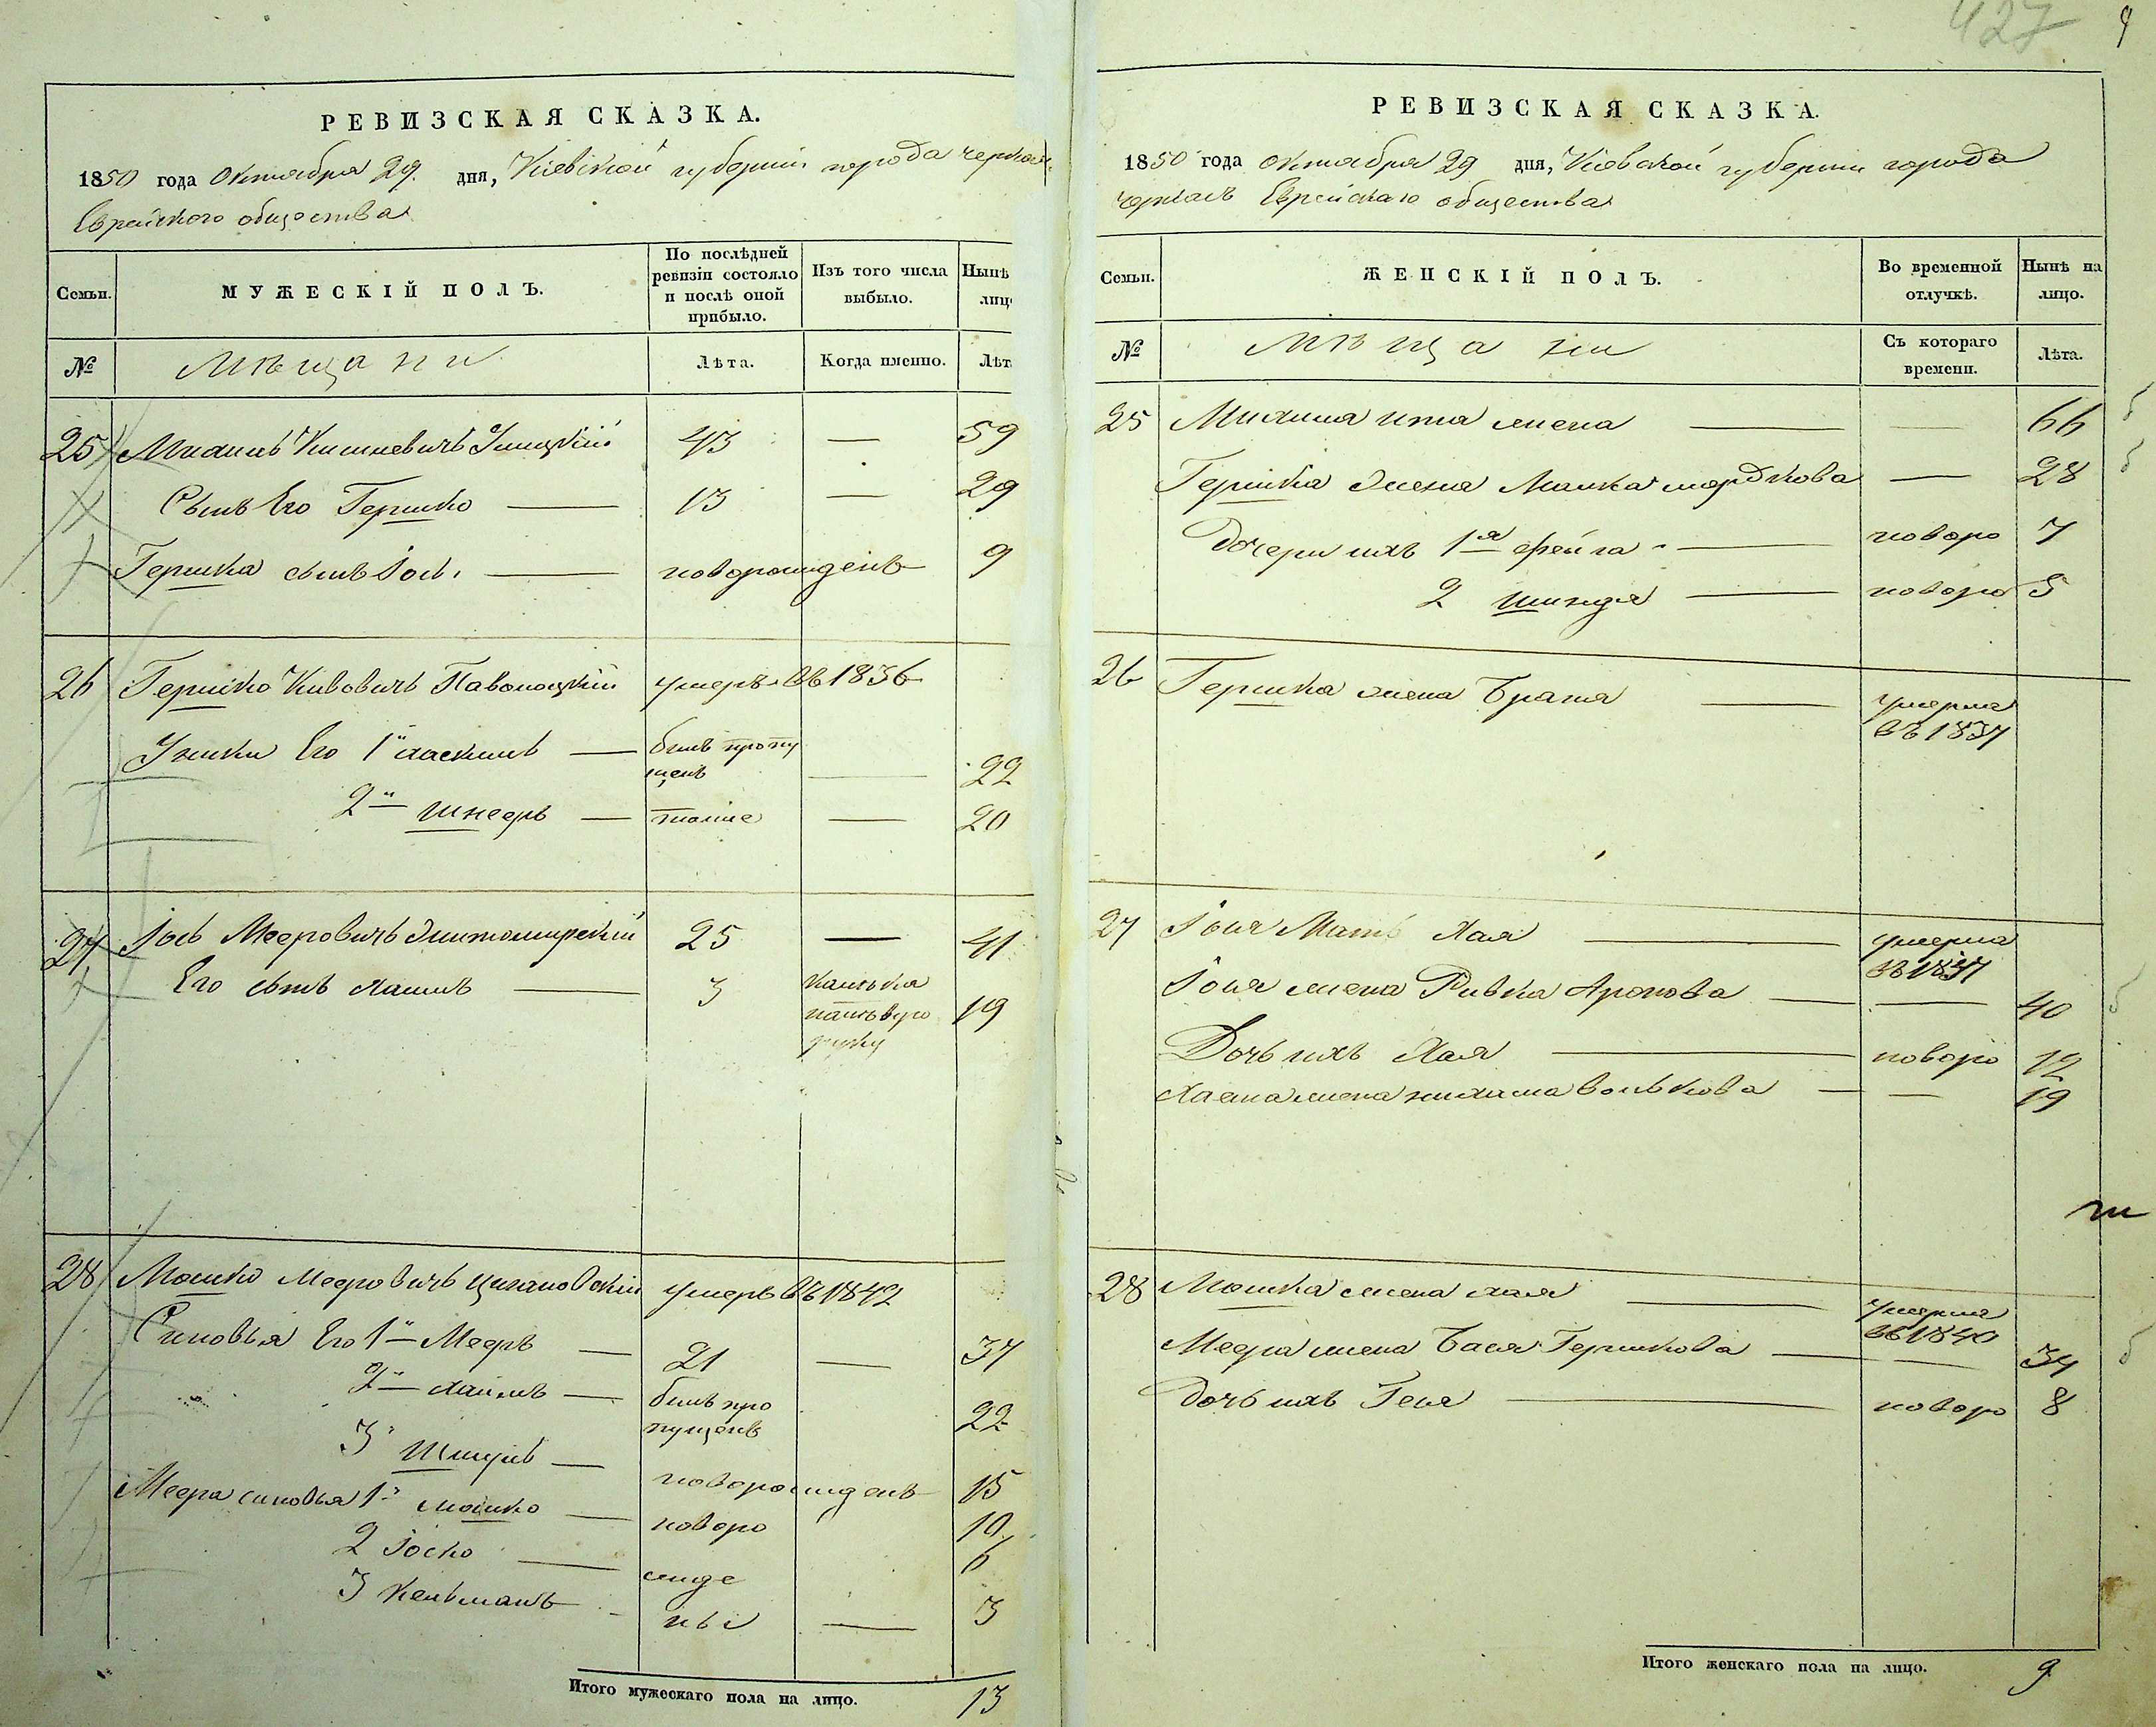 427 9
РЕВИЗСКАЯ СКАЗКА.
1850 года Октября 29 дня, Кіевской губерніи города Черкасъ
Еврейского общества
Семьи.
МУЖЕСКІЙ ПОЛЪ.
По послѣдней ревизіи состояло и послѣ оной прибыло.
Изъ того числа выбыло.
Нынѣ лицо
№
Мѣщани
Лѣта.
Когда именно.
Лѣт
25 Михель 43 — 59
Сынъ Его Гершко — 13 — 29
Гершка сынъ Іось — новорожденъ 9
26 Гершко Кивовичъ Паволоцкій умеръ въ 1836
Унуки Его 1й Хаскель — былъ пропущенъ — 22
2й Шнееръ — тоже — 20
27 Іось Мееровичъ Житомирскій 25 — 41
Его сынъ Хаимъ — 3 19
28 Мошко Мееровичъ Цигановскій умеръ въ 1842
Синовья Его 1й Мееръ — 21 — 37
2й Хаимъ — былъ пропущенъ 22
3й Шмуль — новорожденъ 15
Меера синовья 1й Мошко — новоро 10
2 Іосько — жде 6
3 Кельманъ — ны — 3
Итого мужескаго пола на лицо. 13
РЕВИЗСКАЯ СКАЗКА.
1850 года октября 29 дня, Кіевской губерніи города
Черкасъ Еврейскаго общества
Семьи.
ЖЕНСКІЙ ПОЛЪ.
Во временной отлучкѣ.
Нынѣ на лицо.
№
Мѣщани
Съ котораго времени.
Лѣта.
25 Михеля Ита жена — — 66
Гершка жена Малка Мордкова — 28
Дочери ихъ 1я Фейга — новоро 7
2 Шинда — новоро 5
26 Гершка жена Брана — умерла въ 1837
27 Іося Мать Хая — умерла въ 1837
Іося жена Ривка Аронова — — 40
Дочь ихъ Хая — новоро 12
Хаема жена Нихама Волькова — — 19
28 Мошка жена Хая — умерла въ 1840
Меера жена Бася Гершкова — — 34
Дочь ихъ Геня — новоро 8
Итого женскаго пола на лицо. 9